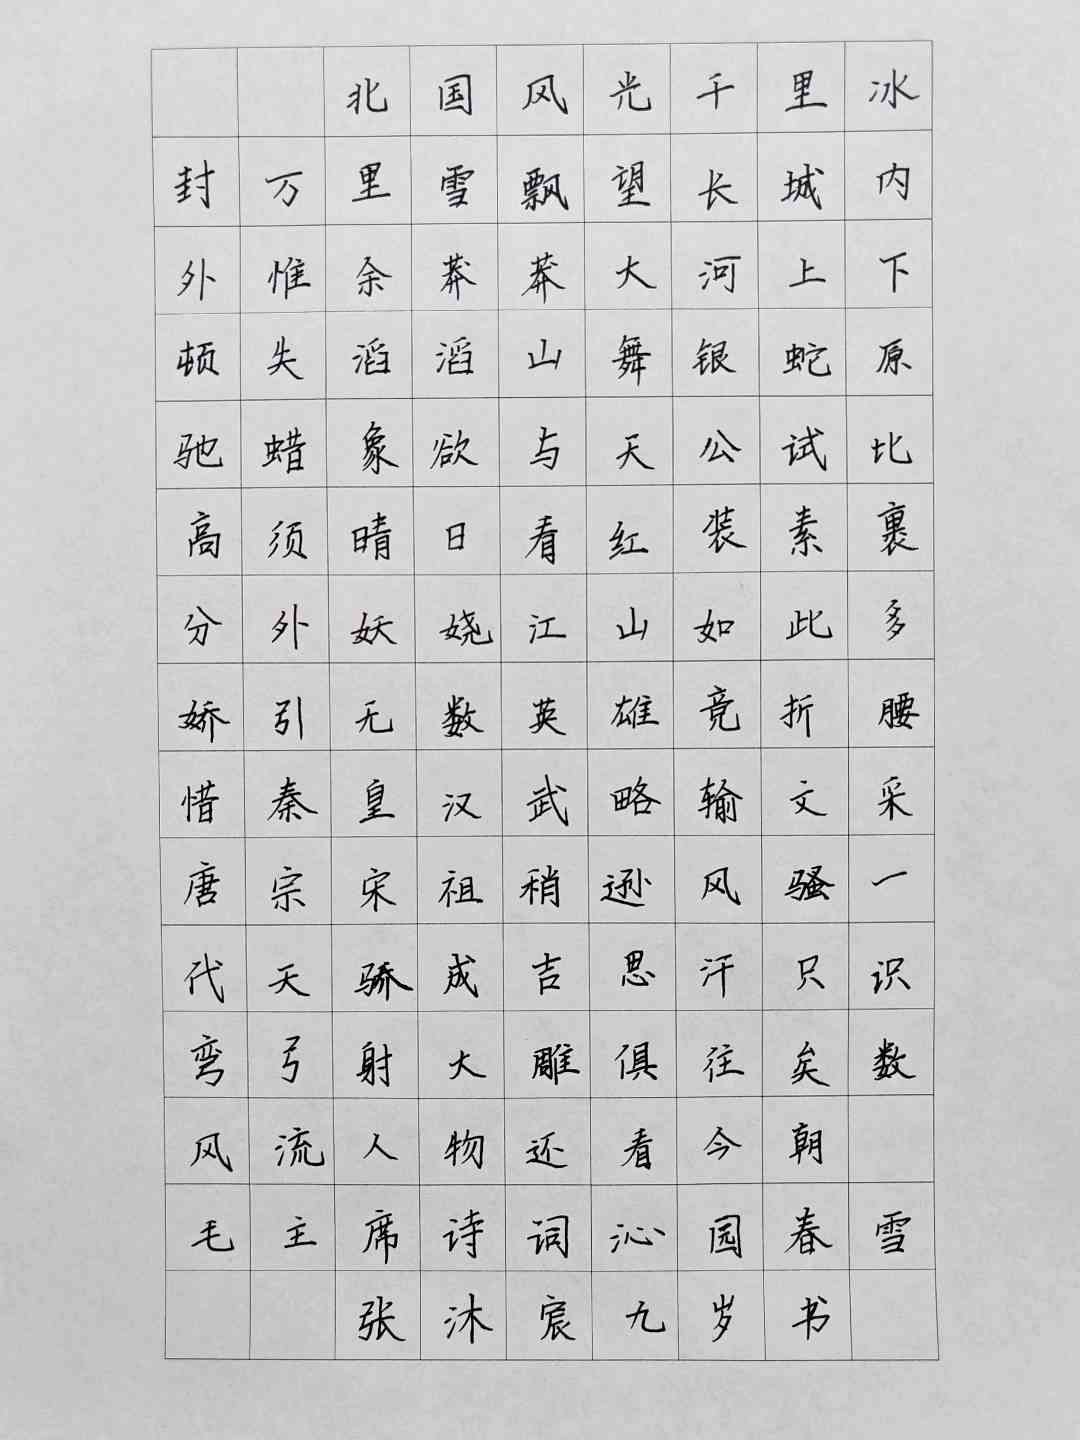 北国风光千里冰
封万里雪飘望长城内
外惟余莽莽大河上下
顿失滔滔山舞银蛇原
驰蜡象欲与天公试比
高须晴日看红装素裹
分外妖娆江山如此多
娇引无数英雄竞折腰
惜秦皇汉武略输文采
唐宗宋祖稍逊风骚一
代天骄成吉思汗只识
弯弓射大雕俱往矣数
风流人物还看今朝
毛主席诗词沁园春雪
张沐宸九岁书